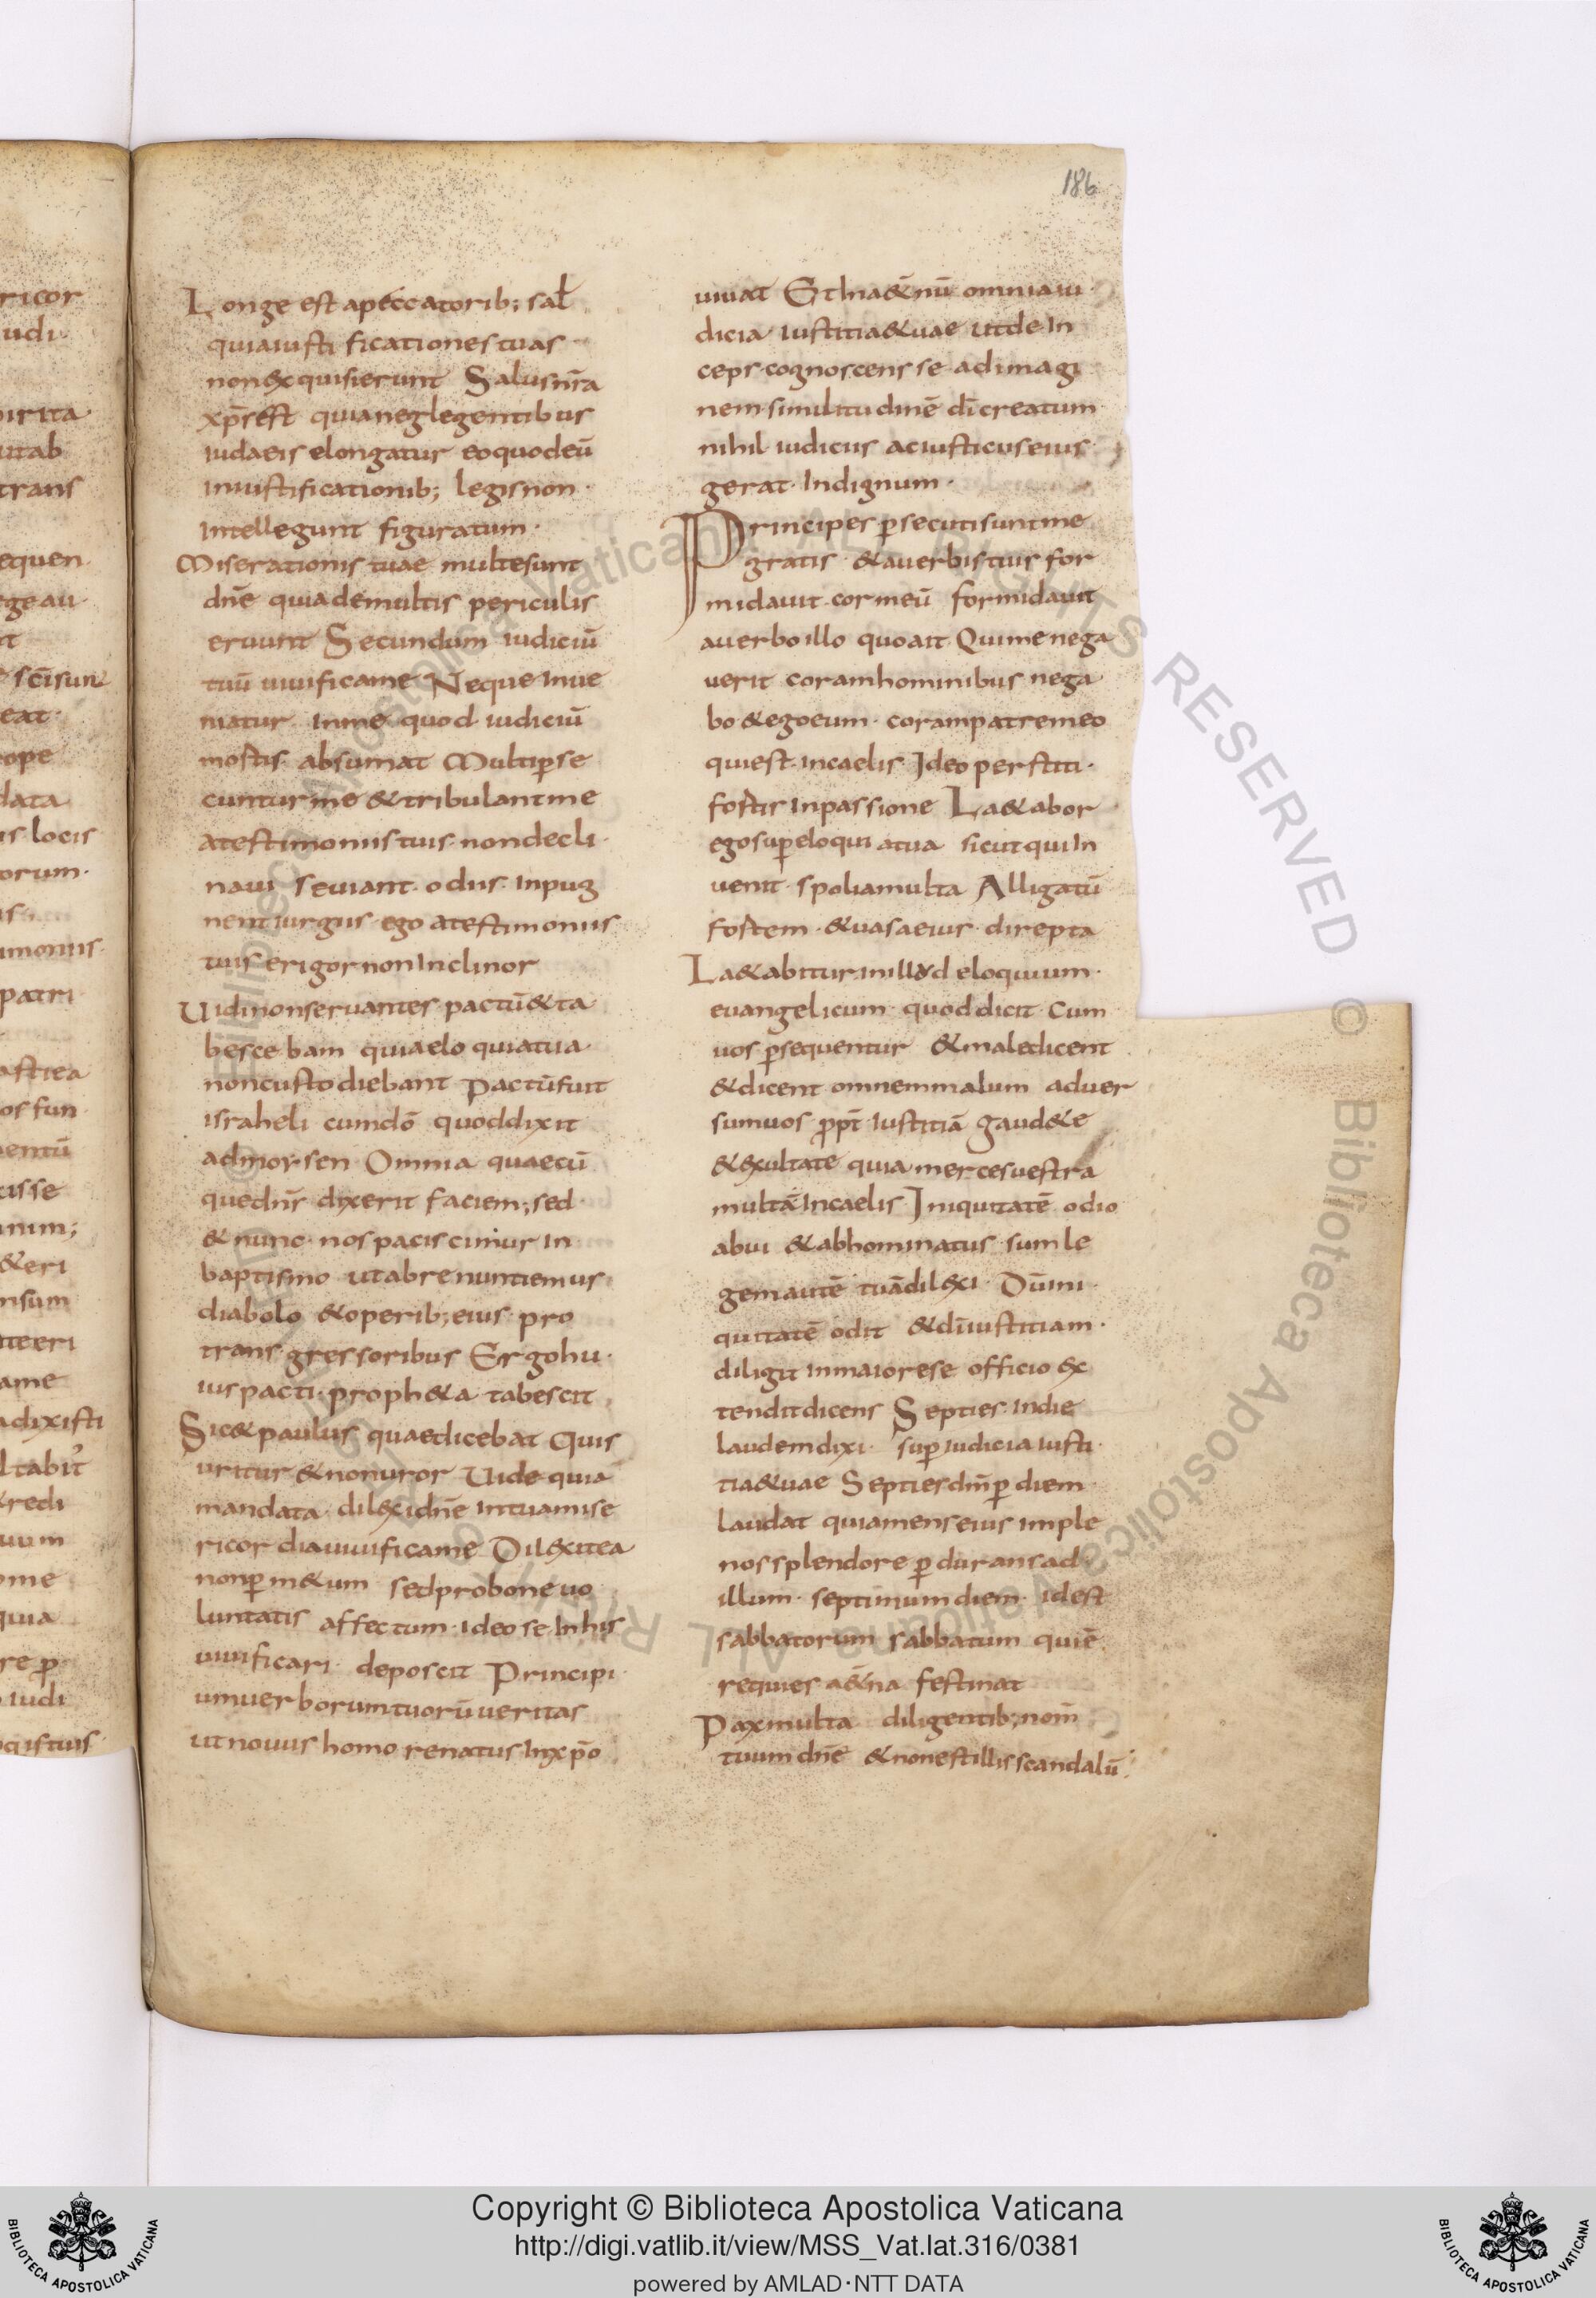 186
Longe est apeccatorib; sal̄
quiaiusti ficationes tuas
nonexquisierunt Salusnr̄a
xp̄sest quianeglegentibus
iudaeis elongatur eoquodeū
iniustificationib; legisnon
intellegunt figuratum.
Miserationis tuae multesunt
dn̄e quiademultis periculis
eruunt Secundum iudiciū
tuū uiuificame Neque inue
niatur inme quod iudiciū
mostis absumat Multip̄se
cunturme &tribulantme
atestimoniis tuis nondecli
naui seuiant odiis inpug
nent iurgiis ego atestimoniis
tuis erigor non inclinor
Uidinonseruantes pactū&ta
besce bam quiaelo quiatua
noncustodiebant Pactūfuit
israheli cumdō quoddixit
admoysen Omnia quaecū
quedn̄s dixerit faciem; sed
& nunc nos paciscimur in
baptismo utabrenuntiemus
diabolo &operib; eius pro
trans gressoribus Ergohu
ius pacti proph&a tabescit
Sic&paulus quaedicebat Quis
uritur &nonuror Uide quia
mandata dilexidn̄e intuamise
ricordiauiuificame Dilexitea
nonp̄ m&um sedprobone uo
luntatis affectum ideose inhis
uiuificari deposcit Principi
umuerborumtuorūueritas
ut nouus homo renatus inxp̄o
uiuat Etina&nū omniaiu
dicia iustitia&uae utde in
ceps cognoscens se adimagi
nem similitudinē dī creatum
nihil iudiciis aciusticiis eius
gerat indignum.
Principes p̄secutisuntme
gratis &auerbistuis for
midauit cor meū formidauit
auerboillo quoait Quimenega
uerit coramhominibus nega
bo &egoeum corampatremeo
quiest incaelis Ideo perstiti
fostis inpassione La&abor
egosup̄eloqui atua sicutqui in
uenit spoliamulta Alligatū
fostem &uasaeius direpta
La&abitur inillud eloquium
euangelicum quoddicit Cum
uos p̄sequentur &maledicent
&dicent omnemmalum aduer
sumuos pp̄t iustitiā gaud&e
&exultate quia merces uestra
multaē incaelis Iniquitatē odio
abui &abhominatus sumle
gemautē tuādilexi Dūini
quitatē odit &dūiustitiam
diligit inmaiorese officio ex
tenditdicens Septies indie
laudemdixi sup̄iudicia iusti
tia&uae Septiesdn̄m p̄ diem
laudat quiamenseius imple
nos splendore p̄durans ad
illum septimum diem idest
sabbatorum sabbatum quiē
requies a&na festinat
Paxmulta diligentib; nom̄
tuum dn̄e &nonestillis scandalū
Copyright © Biblioteca Apostolica Vaticana
http://digi.vatlib.it/view/MSS_Vat.lat.316/0381
powered by AMLAD·NTT DATA
BIBLIOTECA APOSTOLICA VATICANA
BIBLIOTECA APOSTOLICA VATICANA